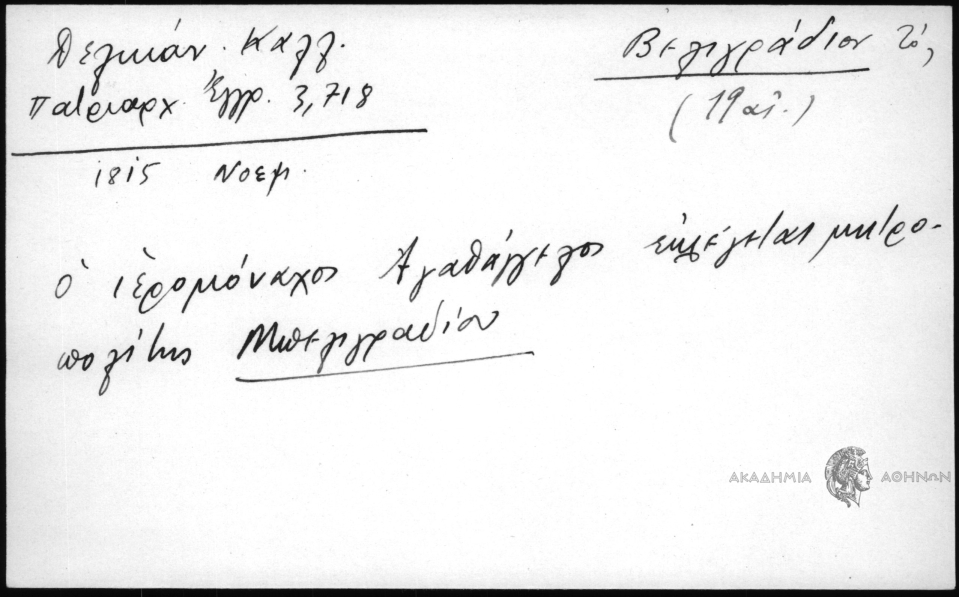 Δελικάν. Καλλ.
Πατριαρχ. Ἔγγρ. 3,718
Βελιγράδιον τό,
(19 αἰ.)
1815 Νοεμ.
ὁ ἱερομόναχος Ἀγαθάγγελος ἐκλέγεται μητρο-
πολίτης Μπελιγραδίου
ΑΚΑΔΗΜΙΑ ΑΘΗΝΩΝ